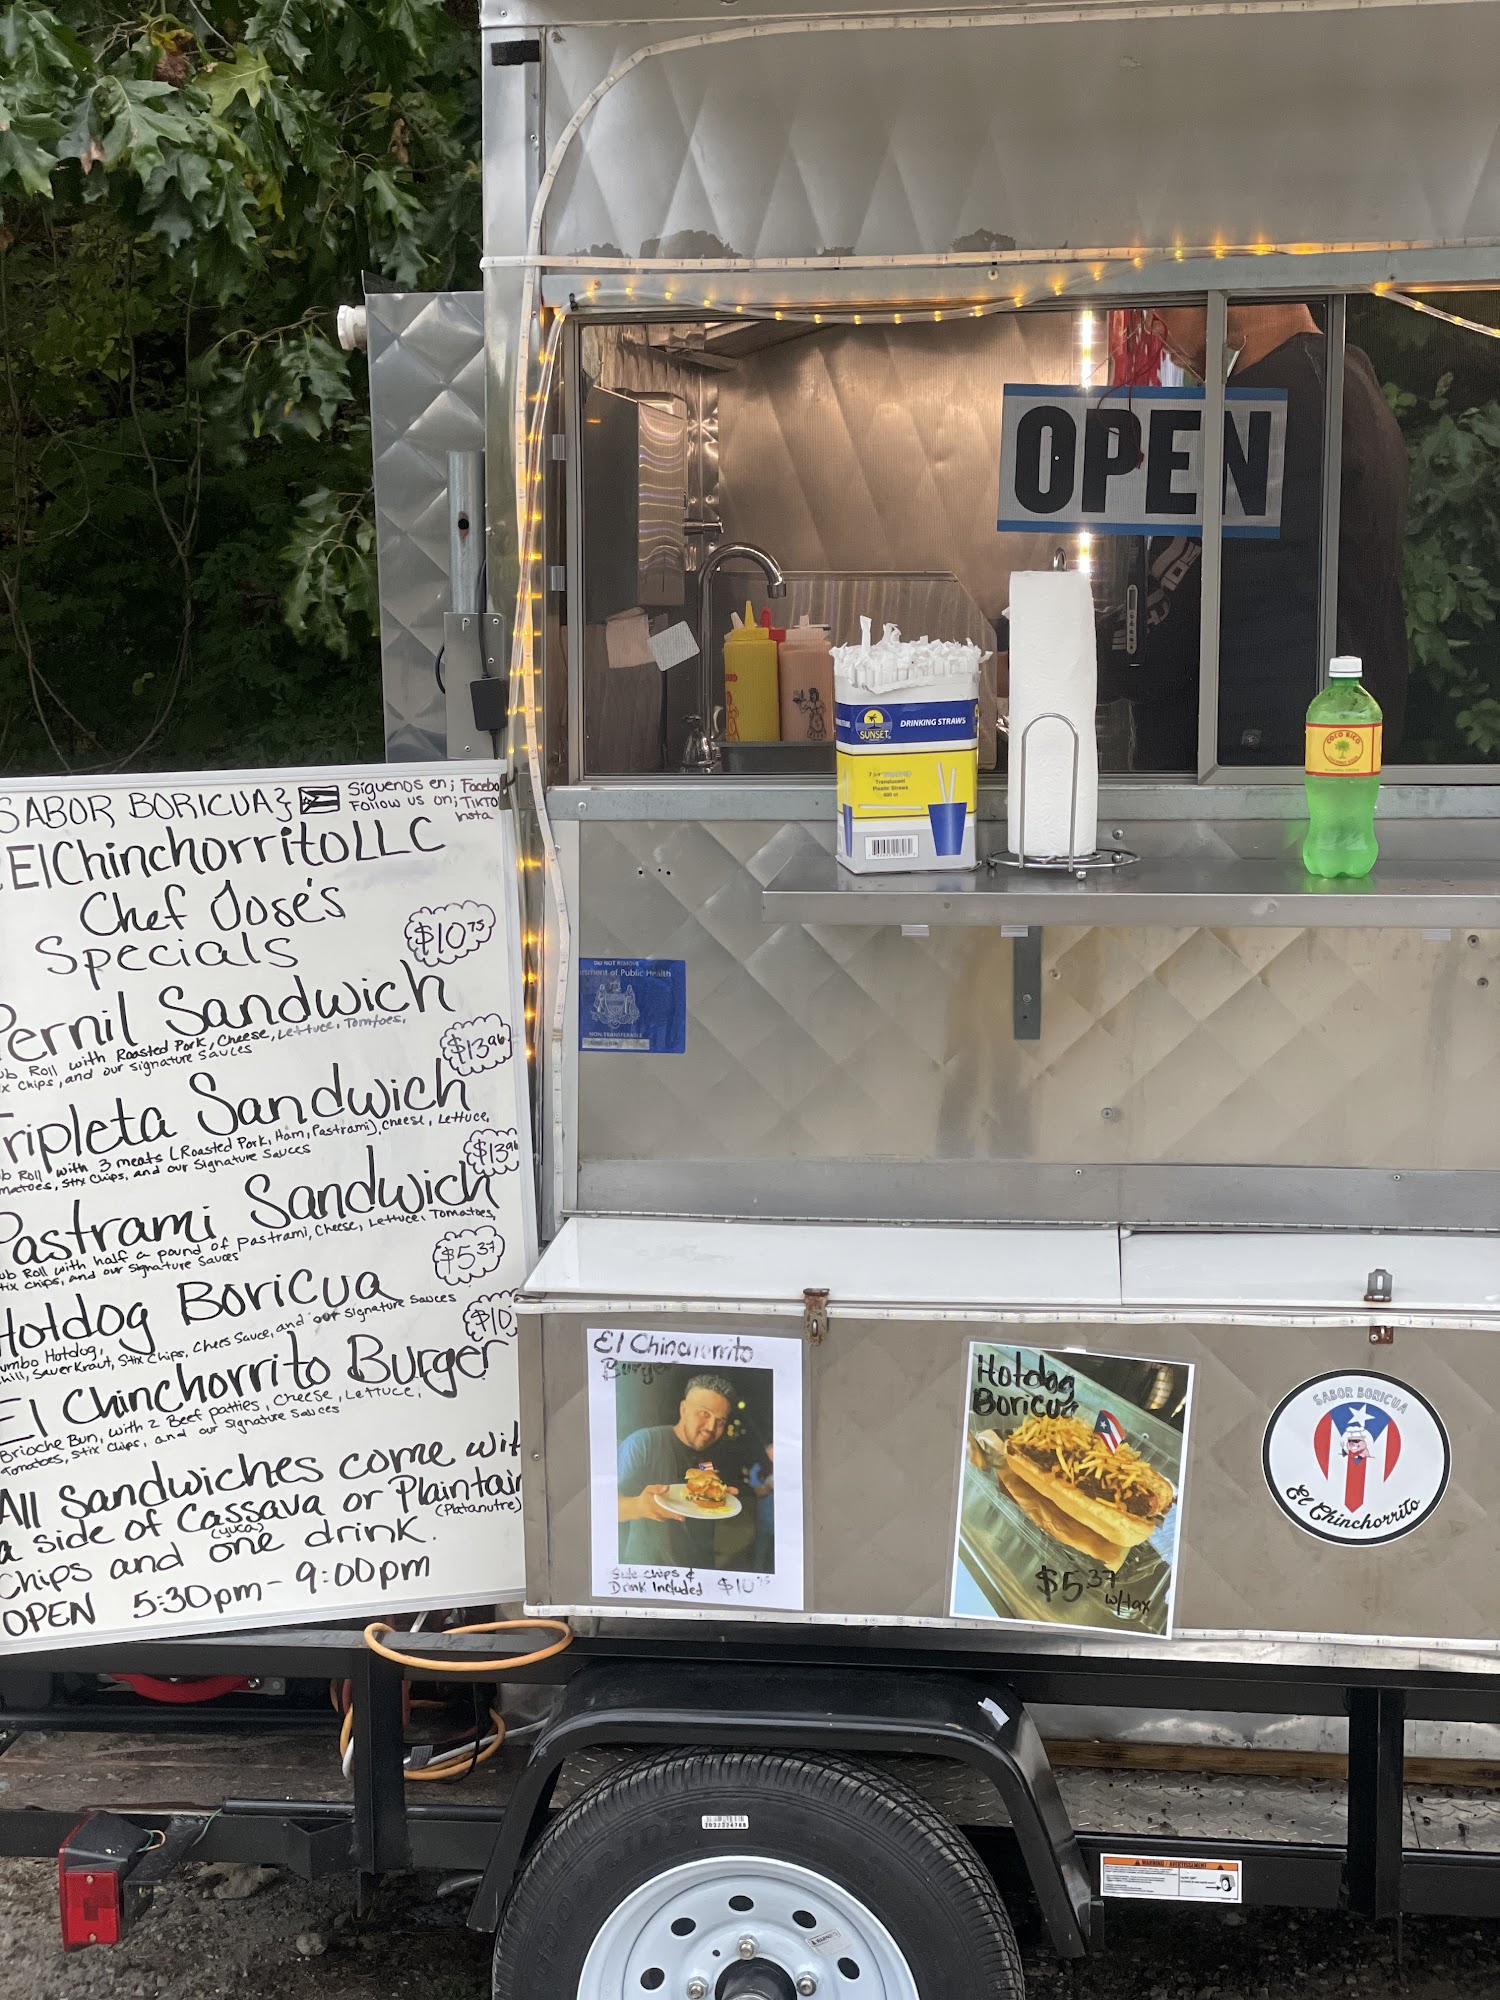 SABOR BORICUA
Síguenos en; Facebo
Follow us on; TikTo
Insta
ElChinchorritoLLC
Chef Jose's
Specials
$10.75
Pernil Sandwich
ub Roll with Roasted Pork, Cheese, Lettuce, Tomtoes,
x Chips, and our signature sauces
$13.96
Tripleta Sandwich
ub Roll with 3 meats (Roasted Pork, Ham, Pastrami), cheese, Lettuce,
matoes, Stix Chips, and our Signature Sauces
$13.96
Pastrami Sandwich
ub Roll with half a pound of Pastrami, Cheese, Lettuce, Tomatoes,
tix chips, and our Signature Sauces
$5.37
Hotdog Boricua
umbo Hotdog,
hili, Sauerkraut, Stix Chips, Chees Sauce, and our Signature Sauces
$10
El Chinchorrito Burger
Brioche Bun, with 2 Beef patties, Cheese, Lettuce,
Tomatoes, Stix Chips, and our Signature Sauces
All Sandwiches come wit
a side of Cassava or Plaintain
(yuca) (Platanutre)
Chips and one drink.
OPEN 5:30pm - 9:00pm
OPEN
SUNSET
DRINKING STRAWS
Translucent
Plastic Straws
COCO RICO
DO NOT REMOVE
rtment of Public Health
NON-TRANSFERABLE
El Chinchorrito
Burger
Side chips &
Drink Included $10.75
Hotdog
Boricua
$5.37
w/tax
SABOR BORICUA
El Chinchorrito
WARNING / AVERTISSEMENT